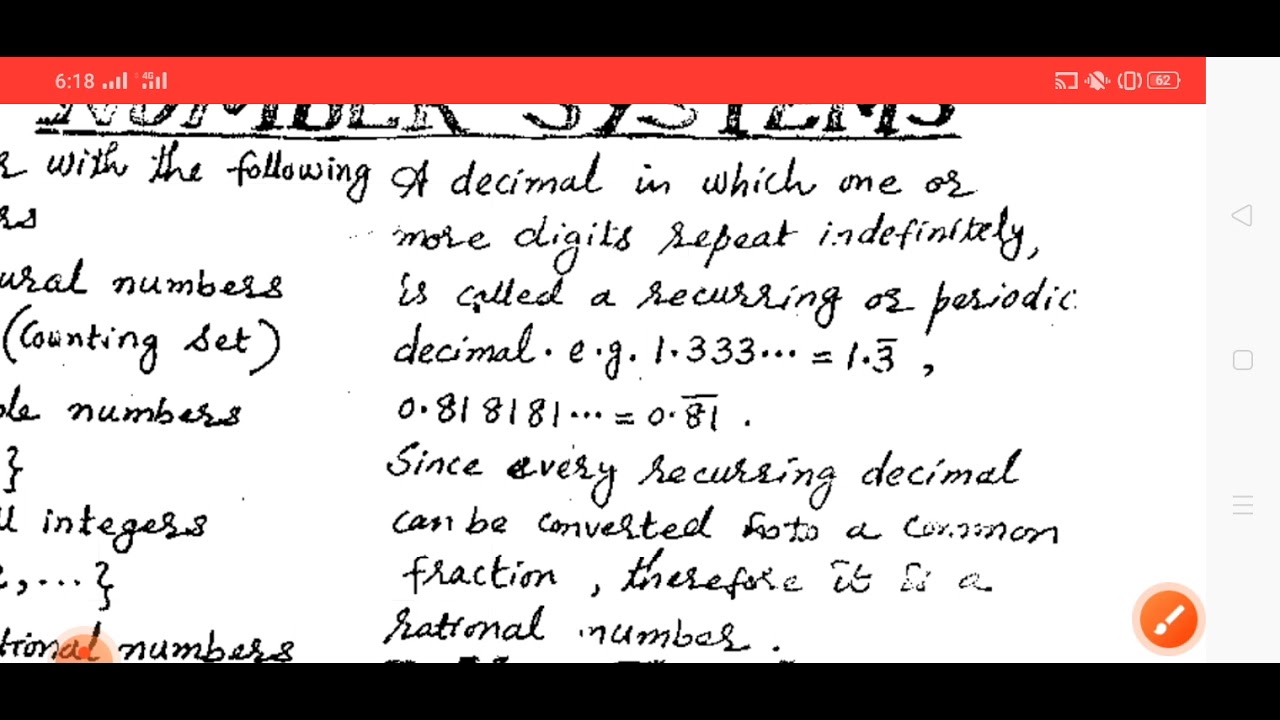 6:18 4G 62
NUMBER SYSTEMS
with the following
ural numbers
(Counting set)
numbers
}
integers
, ... }
tional numbers
A decimal in which one or
more digits repeat indefinitely,
is called a recurring or periodic
decimal. e.g. 1.333... = 1.3̅ ,
0.818181... = 0.8̅1̅ .
Since every recurring decimal
can be converted into a common
fraction , therefore it is a
rational number .